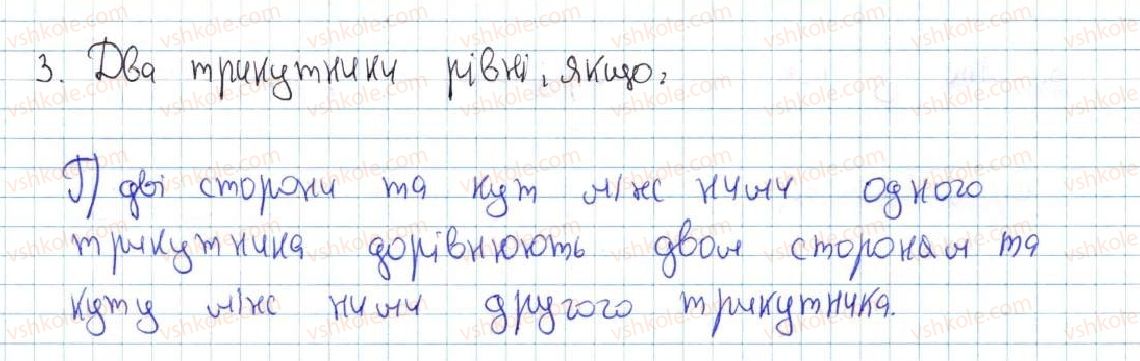 3. Два трикутники рівні, якщо:
Г) дві сторони та кут між ними одного
трикутника дорівнюють двом сторонам та
куту між ними другого трикутника.